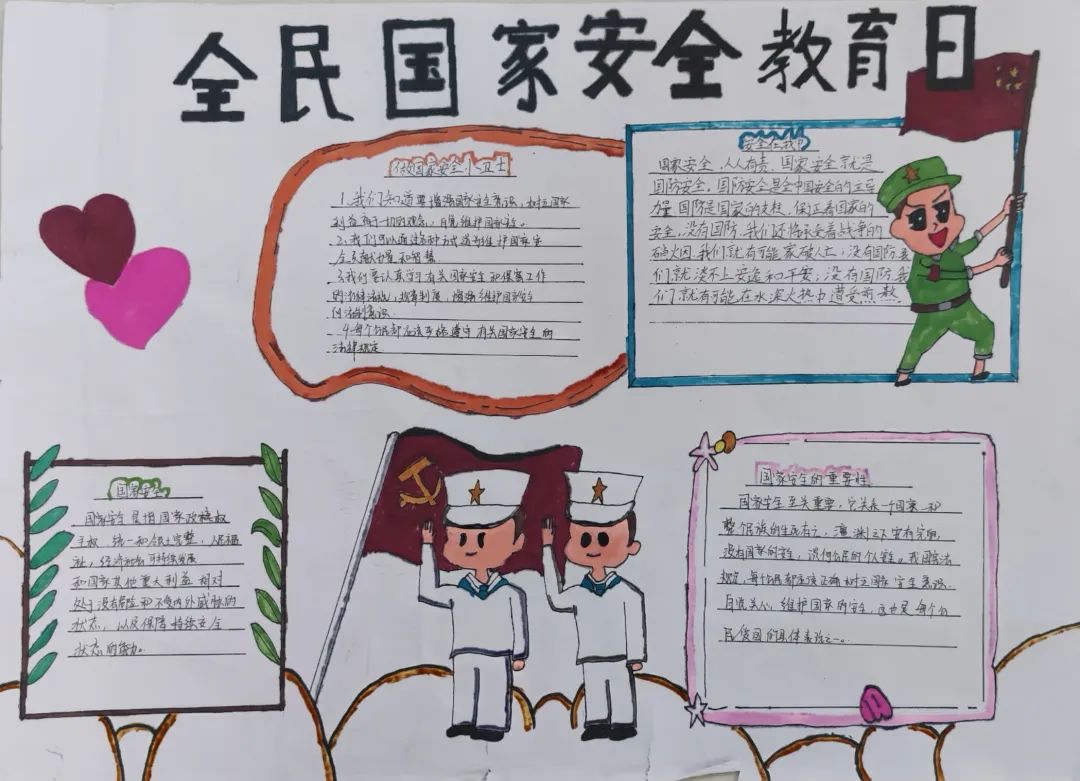 全民国家安全教育日
做国家安全小卫士
1.我们知道要增强国家安全意识,树立国家
利益高于一切的观念,自觉维护国家安
2.我们可以通过各种方式为维护国家安
全贡献力量和智慧.
3.我们要认真学习有关国家安全和保密工作
的法律法规,规章制度,增强维护国家安
的法制意识.
4.每个公民都应该严格遵守有关国家安全的
法律规定
安全在我
国家安全,人人有责.国家安全就是
国防安全,国防安全是全中国安全的主导
力量.国防是国家的支柱,保卫着国家的
安全,没有国防,我们还将承受着战争的
硝火因,我们就有可能家破人亡;没有国防我
们就谈不上安逸和平安;没有国防,我
们就有可能在水深火热中遭受煎熬.
国家安全
国家安全是指国家政权
主权、统一和领土完整、人民福
祉、经济社会可持续发展
和国家其他重大利益相对
处于没有危险和不受内外威胁的
状态,以及保障持续安全
状态的能力.
国家安全的重要性
国家安全至关重要,它关系一个国家和
整个民族的生死存亡,
没有国家的安全,谈何公民的个人安全。我国宪法
规定,每个公民都应该正确树立国家安全意识
自觉关心、维护国家的安全,这也是每个公
民爱国的具体表现之一。